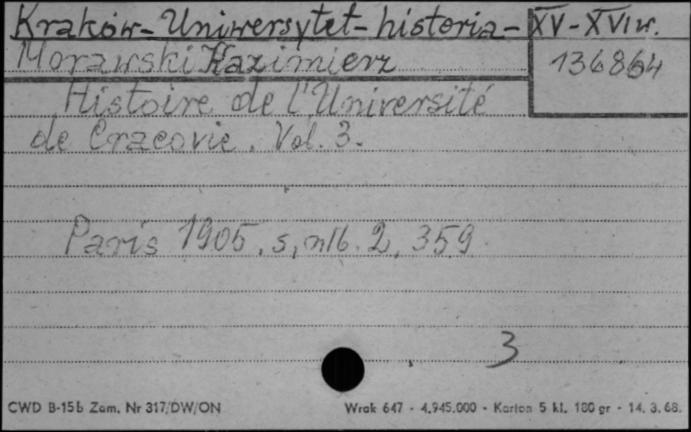 Kraków - Uniwersytet - historia - XV - XVI w.
Morawski Kazimierz 136864
Histoire de l'Université
de Cracovie. Vol. 3.
Paris 1905, s, nlb. 2, 359
3
CWD B-15b Zam. Nr 317/DW/ON Wrak 647 - 4.945.000 - Karton 5 kl. 180 gr - 14. 3. 68.